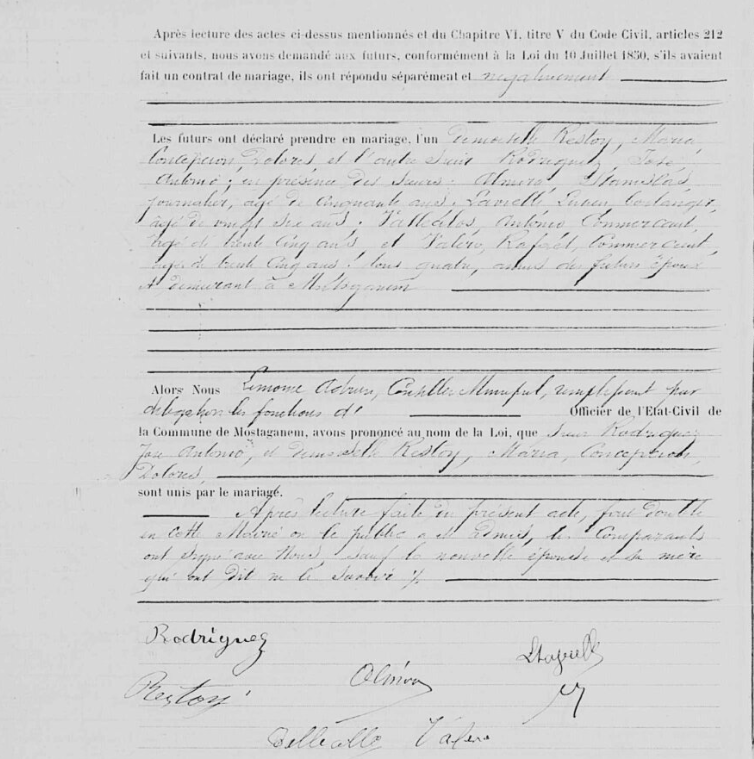 Après lecture des actes ci-dessus mentionnés et du Chapitre VI, titre V du Code Civil, articles 212
et suivants, nous avons demandé aux futurs, conformément à la Loi du 10 Juillet 1850, s'ils avaient
fait un contrat de mariage, ils ont répondu séparément et négativement
Les futurs ont déclaré prendre en mariage, l'un Demoiselle Restoy, Maria,
Concepcion, Dolores et l'autre Sieur Rodriguez, José
Antonio; en présence des Sieurs: Almira, Stanislas,
journalier, âgé de cinquante ans; Lucien, boulanger,
âgé de vingt six ans; Antonio, Commerçant,
âgé de trente cinq ans, et Valero, Rafaël, commerçant,
âgé de trente cinq ans; tous quatre, amis des futurs époux
et demeurant à Mostaganem
Alors Nous Adrien, Conseiller Municipal, remplissant par
délégation les fonctions d' Officier de l'Etat-Civil de
la Commune de Mostaganem, avons prononcé au nom de la Loi, que Sieur Rodriguez,
José Antonio, et Demoiselle Restoy, Maria, Concepcion,
Dolores,
sont unis par le mariage.
Après lecture faite du présent acte,
en cette Mairie où le public a été admis, les Comparants
ont signé avec Nous, sauf la nouvelle épouse et sa mère
qui ont dit ne le savoir ./.
Rodriguez
Restoy
Valero